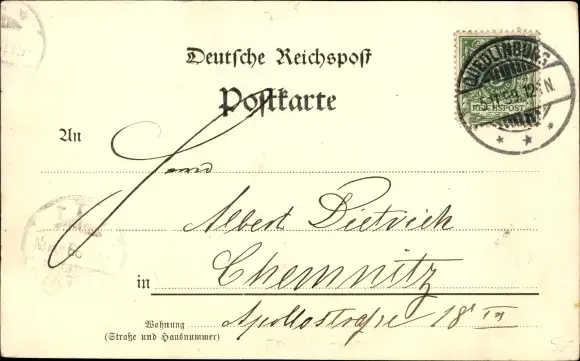 Deutsche Reichspost
Postkarte
QUEDLINBURG
12-1N.
REICHSPOST
An
Herrn
Albert Dietrich
in Chemnitz
Wohnung
(Straße und Hausnummer)
Apollostraße 18 III